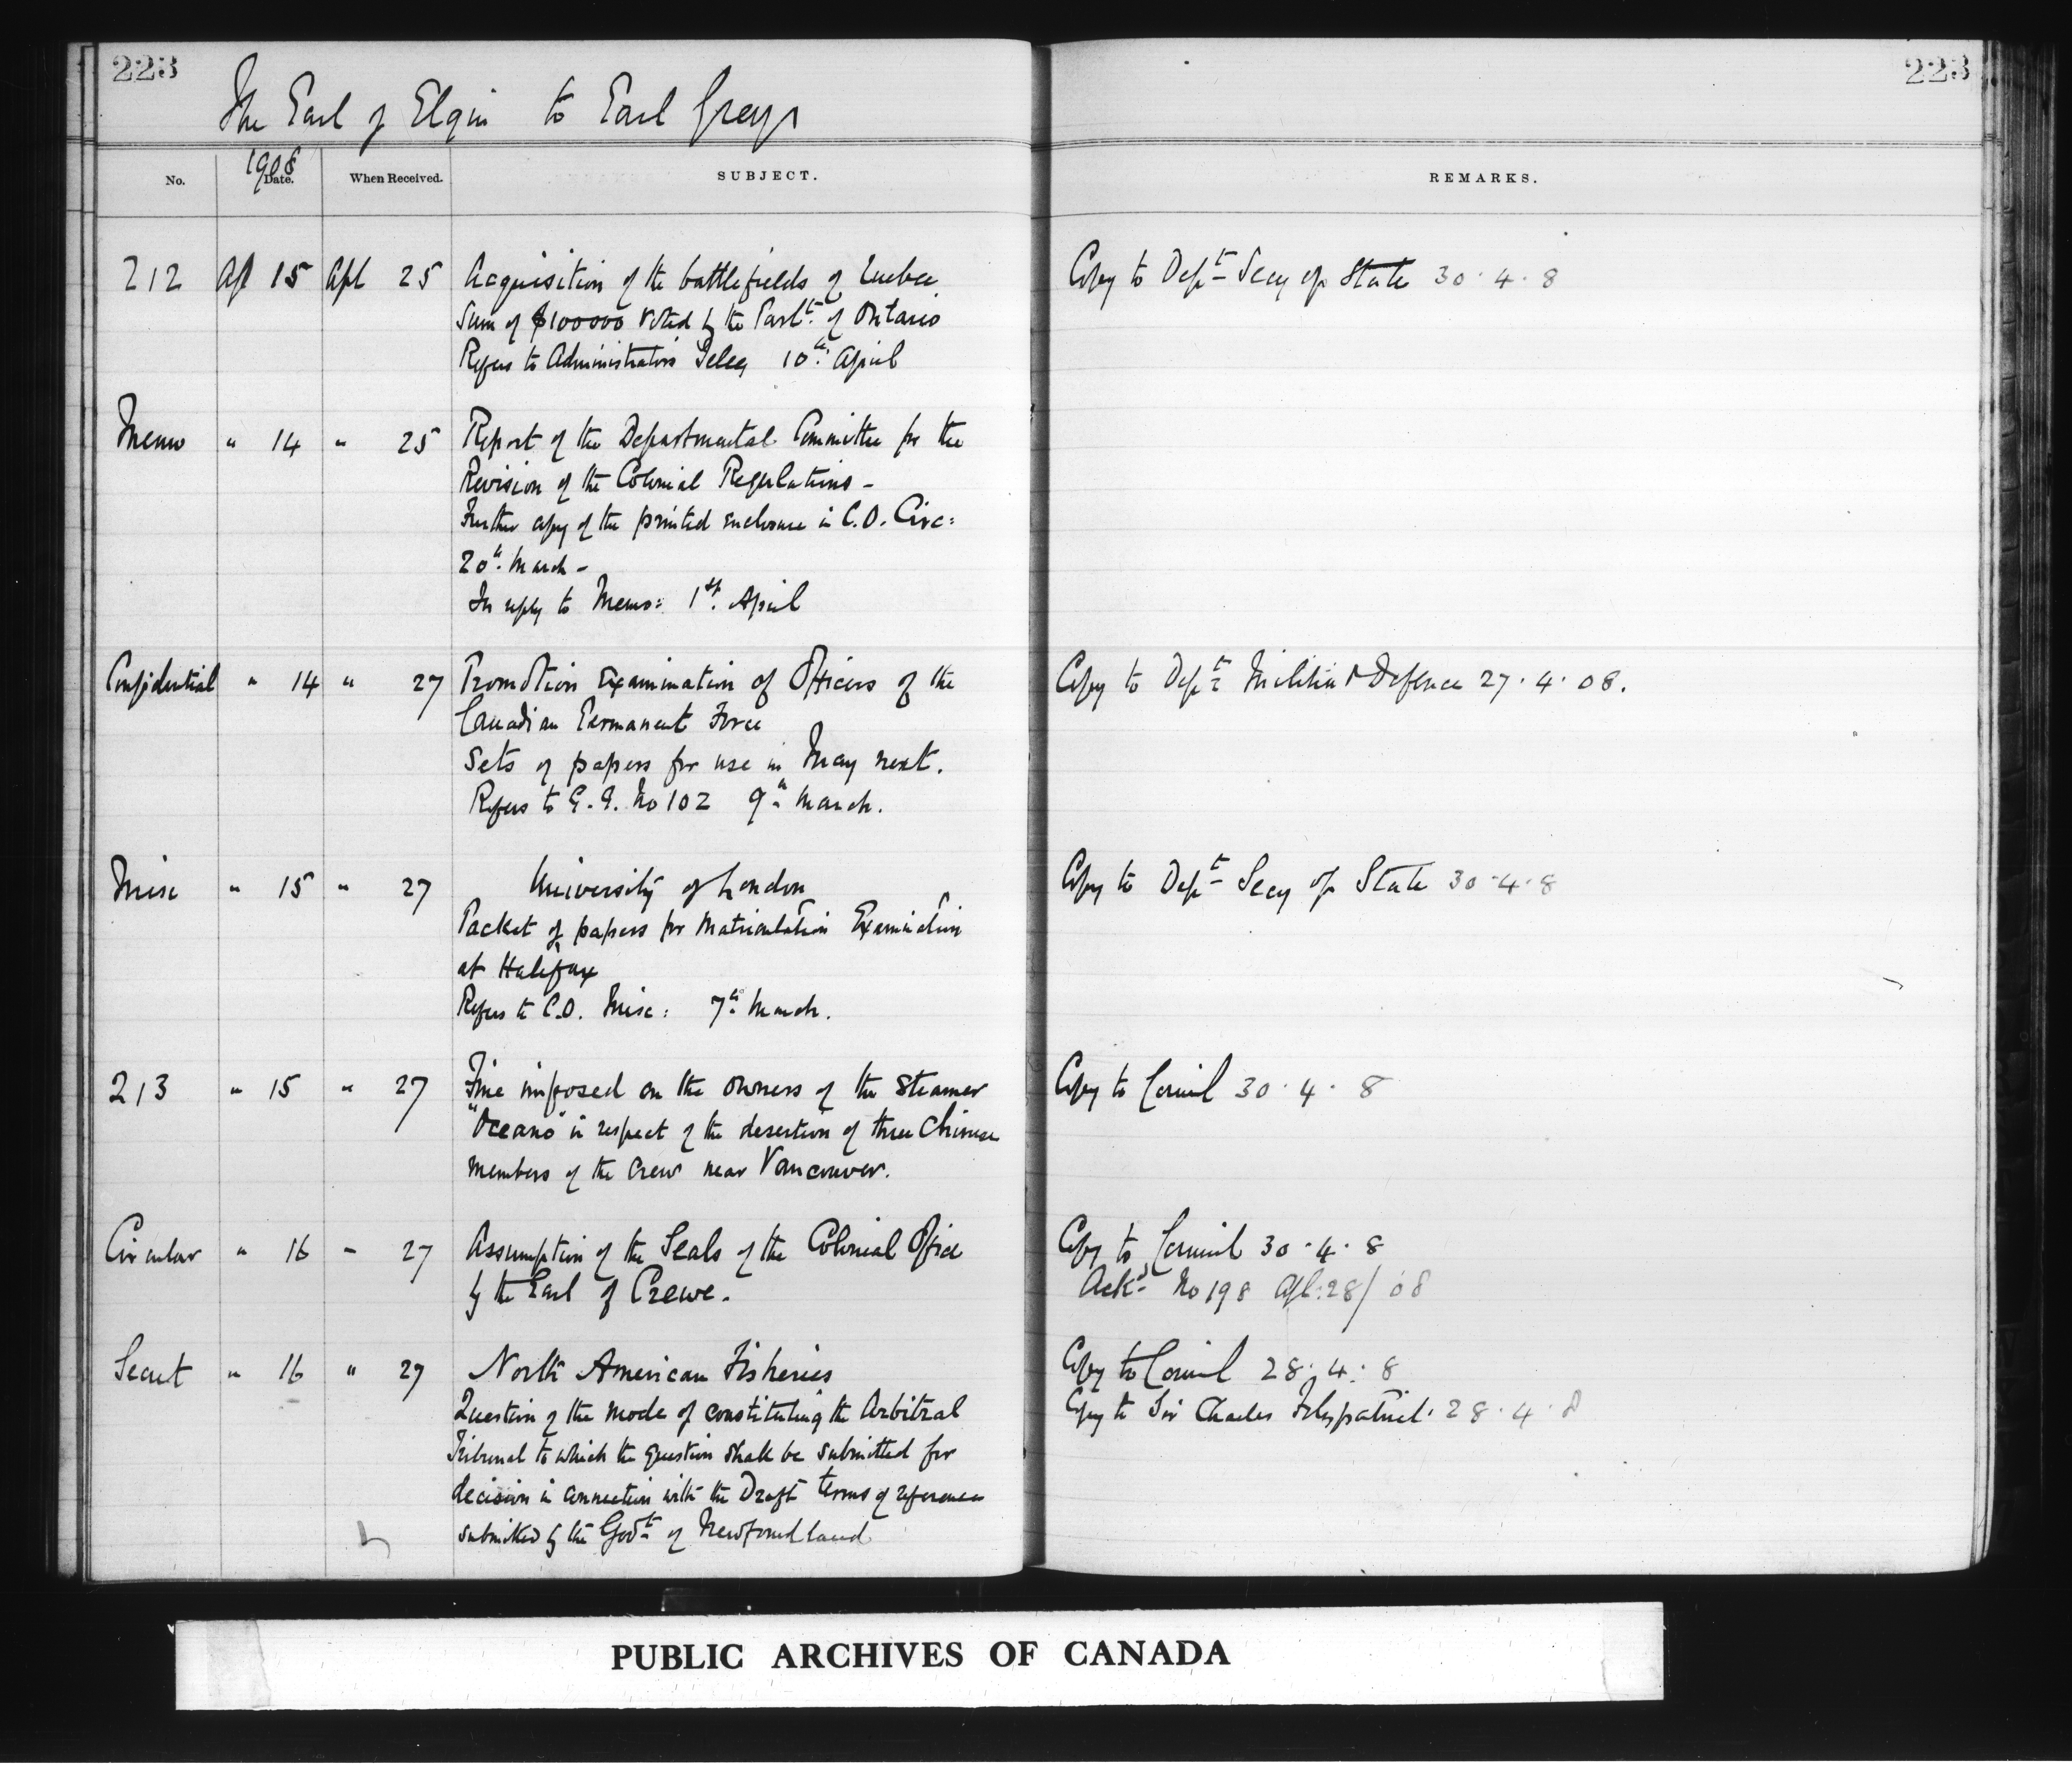 223
223
The Earl of Elgin to Earl Grey
1908
No.
Date.
When Received.
SUBJECT.
REMARKS.
212 Apl 15 Apl 25 Acquisition of the battlefields of Quebec
Copy to Dept Secy of State 30.4.8
Sum of $100000 voted by the Parlt. of Ontario
Refers to Administrators Teleg 10th April
Memo " 14 " 25 Report of the Departmental Committee for the
Revision of the Colonial Regulations -
Further copy of the printed enclosure in C.O. Circ:
20th March -
In reply to Memo: 1st. April
Confidential " 14 " 27 Promotion Examination of Officers of the
Copy to Dept Militia & Defence 27.4.08.
Canadian Permanent Force
Sets of papers for use in May next.
Refers to G.G. No 102 9th March.
Misc " 15 " 27 University of London
Copy to Dept Secy of State 30.4.8
Packet of papers for Matriculation Examination
at Halifax
Refers to C.O. Misc: 7th March.
213 " 15 " 27 Fine imposed on the owners of the Steamer
Copy to Council 30.4.8
"Oceano" in respect of the desertion of three Chinese
members of the crew near Vancouver.
Circular " 16 " 27 Assumption of the Seals of the Colonial Office
Copy to Council 30.4.8
by the Earl of Crewe.
Ackd No 198 Apl. 28/08
Secret " 16 " 27 North American Fisheries
Copy to Council 28.4.8
Question of the mode of constituting the Arbitral
Copy to Sir Charles Fitzpatrick. 28.4.8
Tribunal to which the question shall be submitted for
decision in connection with the Draft terms of reference
submitted by the Govt of Newfoundland
PUBLIC ARCHIVES OF CANADA